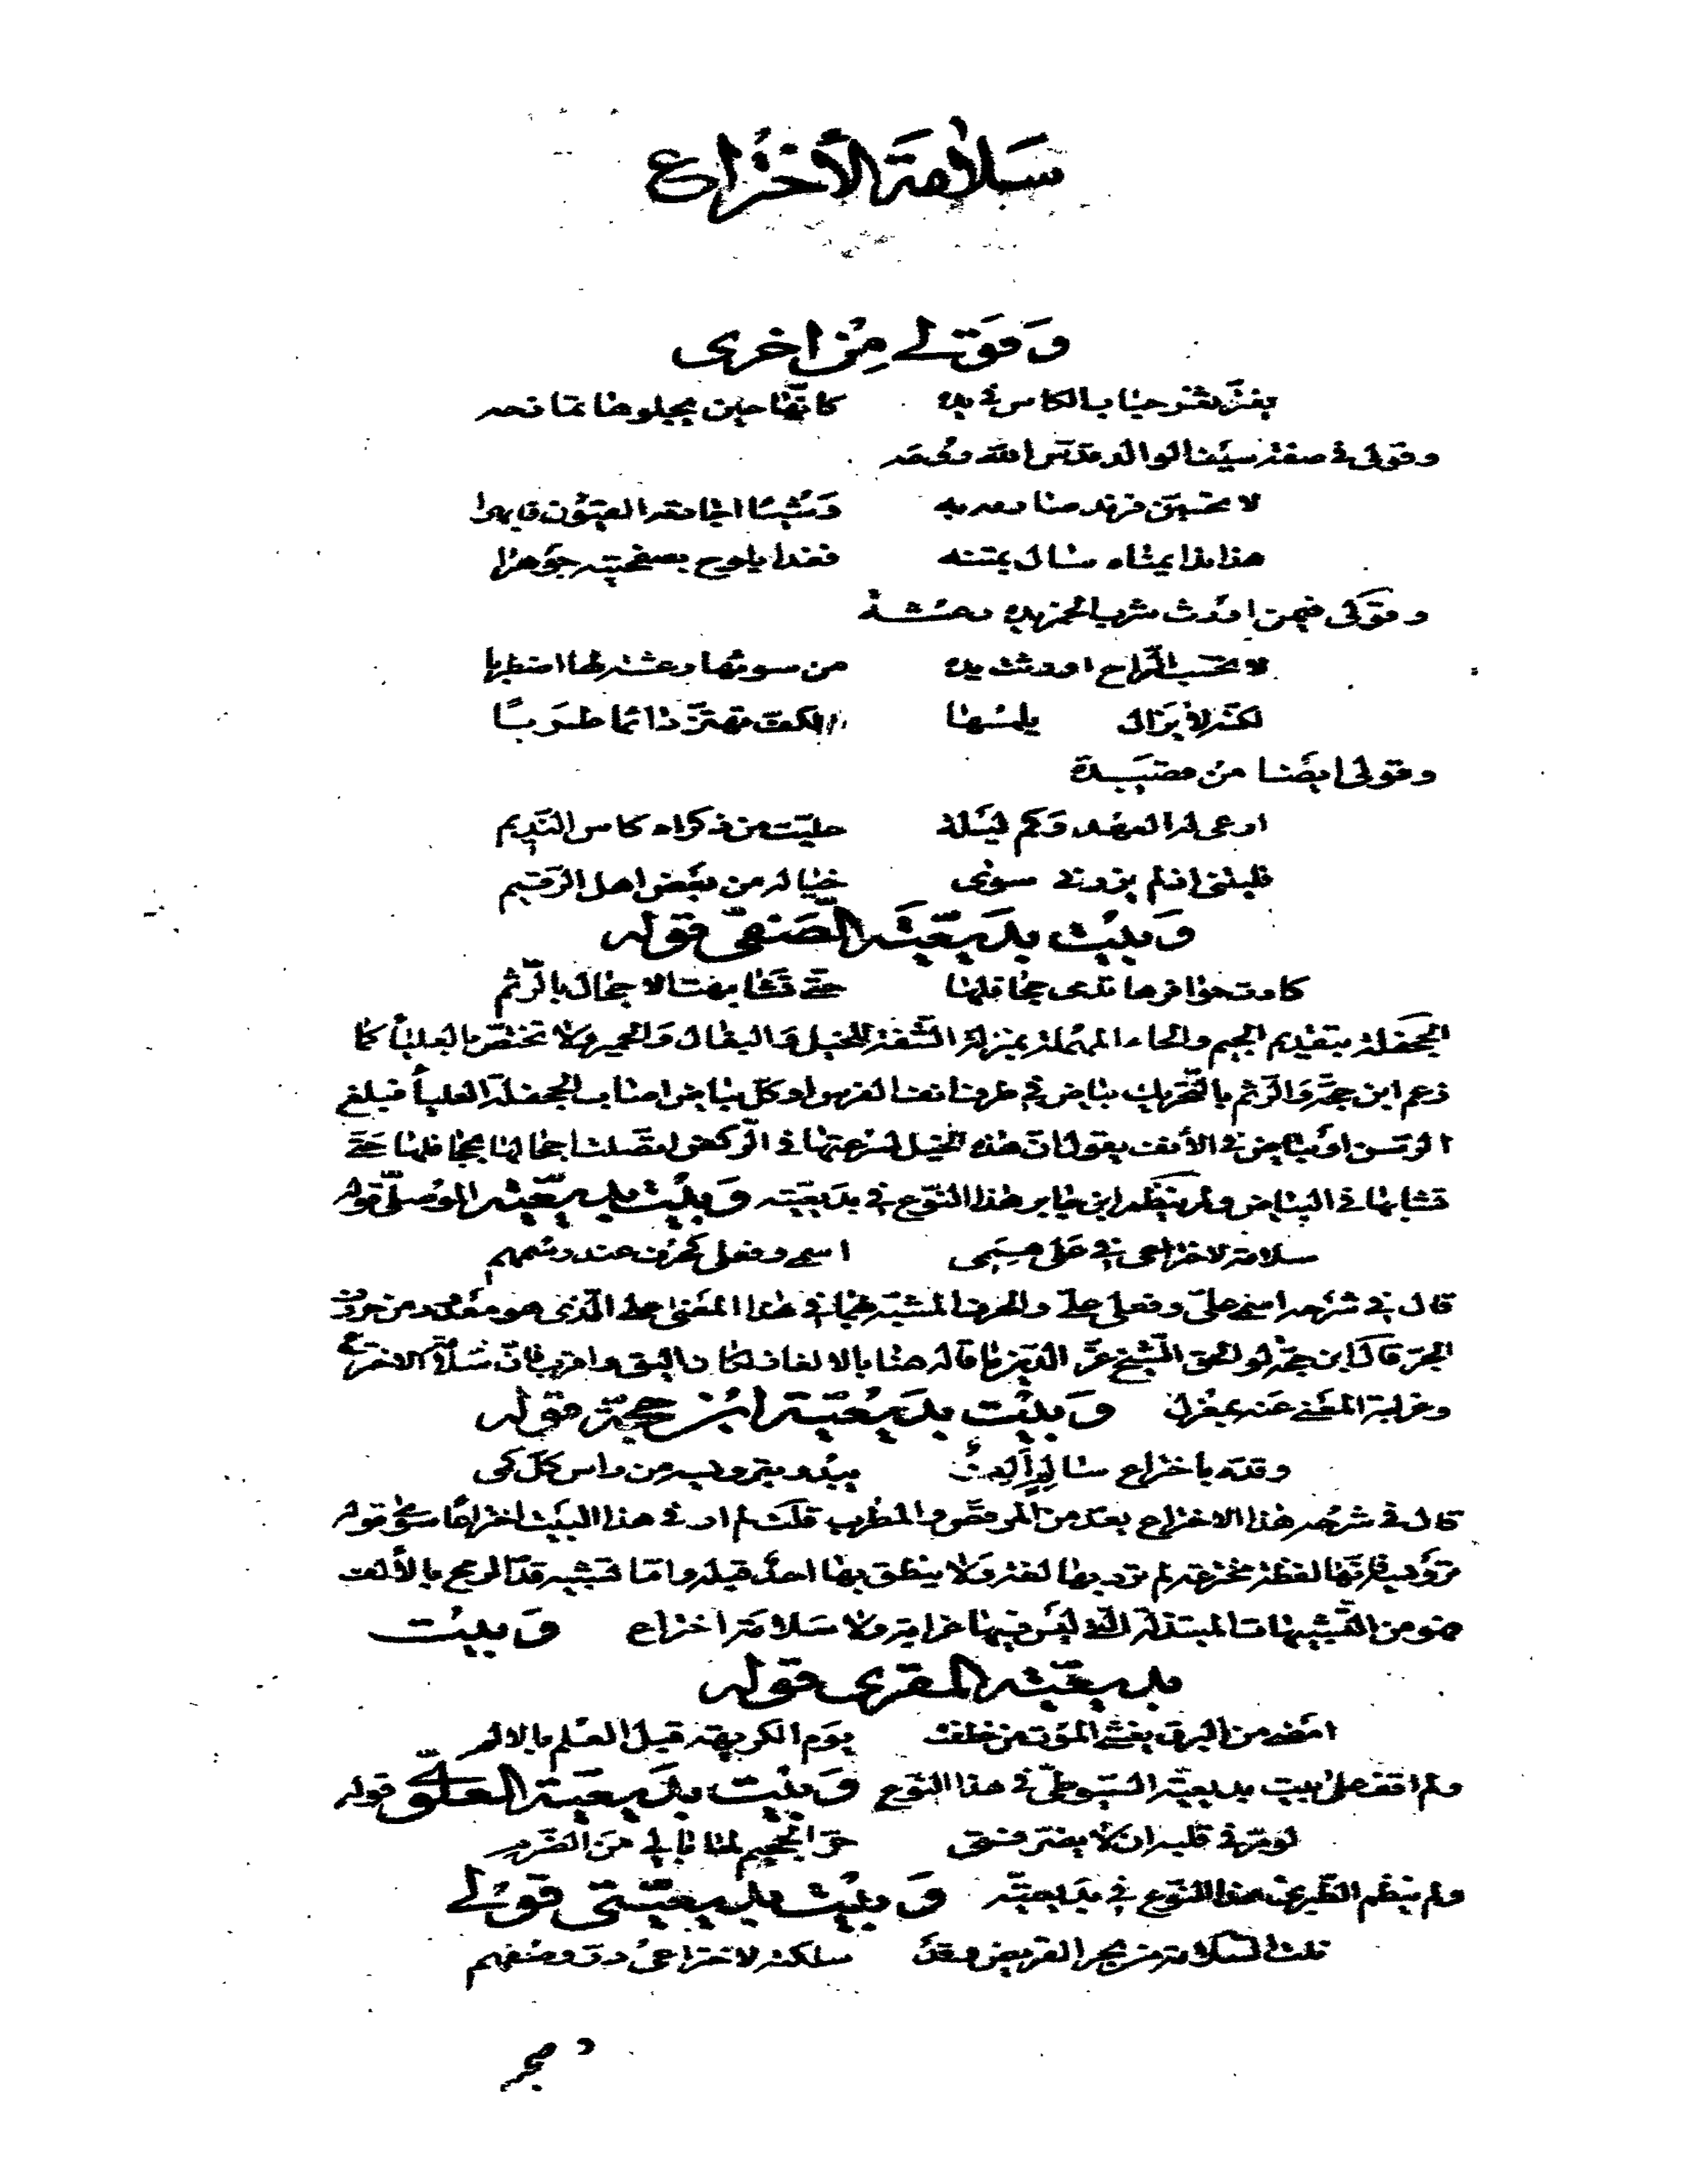 سلامة الاختراع
وقولي من اخرى
يفتر ثغر حباب الكاس في يده كانها حين يجلوها
وقولي في صفة سيف الوالد قدس الله روحه
لا تحسبن فرند صارمه به وشيا اجادته القيون فابهرا
هذا ندا يمناه سال بمتنه فغدا يلوح بصفحتيه جوهرا
وقولي فيمن اورث شرب الخمر يده رعشة
لا تحسب الراح اورثت يده من سوئها رعشة لها اضطربا
لكنه لا يزال يلمسها فالكف تهتز دائما طربا
وقولي ايضا من قصيدة
ارعى له العهد وكم ليلة حليت من ذكراه كاس النديم
فليتني اذ لم يزرني سوى خياله من بعض اهل الرقيم
وبيت بديعية الصفي قوله
كادت حوافرها تدمي جحافلها حتى تشابهت الاحجال بالرثم
الجحفلة بتقديم الجيم والحاء المهملة بمنزلة الشفة للخيل والبغال والحمير ولا تختص بالعليا كما
زعم ابن حجة والرثم بالتحريك بياض في طرف انف الفرس او كل بياض اصاب الجحفلة العليا فبلغ
المرسن او بياض في الأنف يقول ان هذه الخيل لسرعتها في الركض اتصلت احجالها بجحافلها حتى
تشابها في البياض ولم ينظم ابن جابر هذا النوع في بديعيته وبيت بديعية الموصلي قوله
سلامة لاختراعي في على همي اسم وفعل كحرف عند رسمهم
قال في شرحه اسم علي وفعل علا والحرف المشبه بها في هذا المعنى على الذي هو معدود من حروف
الجر قال ابن حجة لو لحق الشيخ عز الدين ما قاله هنا بالالغاز لكان اليق واقرب فان سلامة الاختراع
وغرابة المعنى عنه بمعزل وبيت بديعية ابن حجة قوله
وقده باختراع سالم الف يبدو بترويسه من راس كل كمي
قال في شرحه هذا الاختراع يعد من المرقص والمطرب قلت لم ار في هذا البيت اختراعا سوى قوله
ترويسه فانها لفظة مخترعة لم ترد بها لغة ولا ينطق بها احد قبله واما تشبيه قد الرمح بالألف
فهو من التشبيهات المبتذلة التي ليس فيها غرابة ولا سلامة اختراع وبيت
بديعية المقري قوله
امضى من البرق يغشى الموت من خلفت يوم الكريهة قبل العلم بالالم
ولم اقف على بيت بديعية السيوطي في هذا النوع وبيت بديعية العلوي قوله
لو قر في قلبه ان لا يضر فسق حر الجحيم لما نابلي من الضرم
ولم ينظم الطبري هذا النوع في بديعيته وبيت بديعيتي قولي
نلت السلامة من بحر القريض وقد سلكته لاختراعي در وصفهم